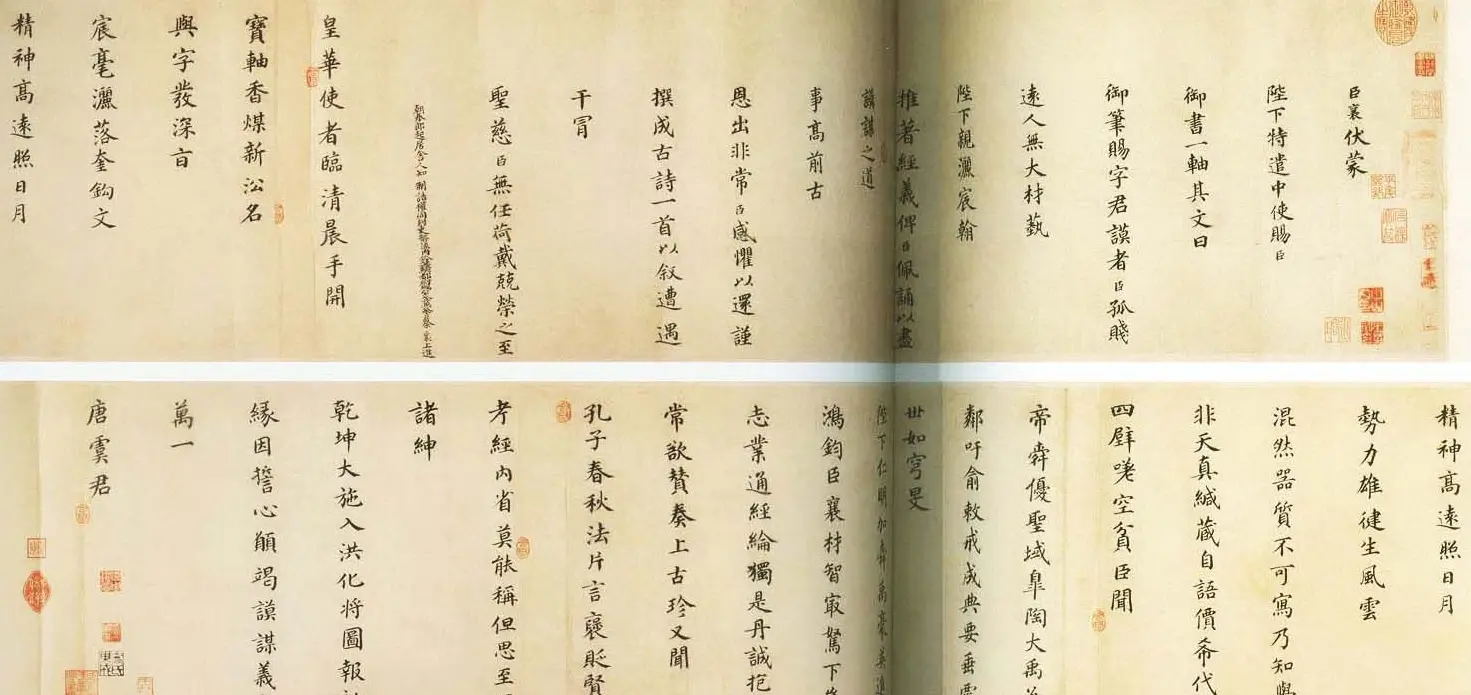 臣襄伏蒙
陛下特遣中使賜臣
御書一軸其文曰
御筆賜字君謨者臣孤賤
遠人無大材藝
陛下親灑宸翰
推著經義俾臣佩誦以盡
謨謀之道
事高前古
恩出非常臣感懼以還謹
撰成古詩一首以叙遭遇
干冒
聖慈臣無任荷戴兢榮之至
朝奉郎起居舍人知制誥權同判吏部流內銓
皇華使者臨清晨手開
寶軸香煤新沿名
與字發深旨
宸毫灑落奎鈎文
精神高遠照日月
精神高遠照日月
勢力雄健生風雲
混然器質不可寫乃知學
非天真緘藏自語價希代
四壁嘆空貧臣聞
帝舜優聖域皐陶大禹為
鄰吁俞敕戒成典要垂覆
丗如穹旻
陛下仁明加舜禹豪英進
鴻鈞臣襄材智寂駑下
志業通經綸獨是丹誠抱
常欲贊奏上古珍又聞
孔子春秋法片言襃貶賢
考經內省莫能稱但思至
諸紳
乾坤大施入洪化將圖報
緣因擔心願竭謨謀義
萬一
唐虞君